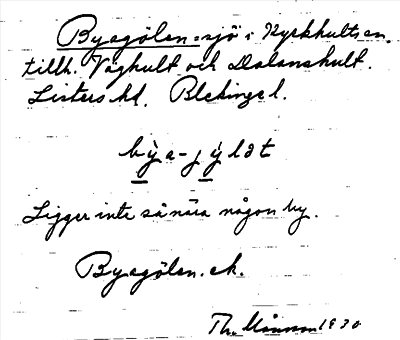 Byagölen = sjö i Kyrkhults sn.
tillh. Våghult och Dalanshult.
Listers hd. Blekinge l.
bỳa-jỳlət
Ligger inte så nära någon by.
Byagölen. ek.
Th. 1930